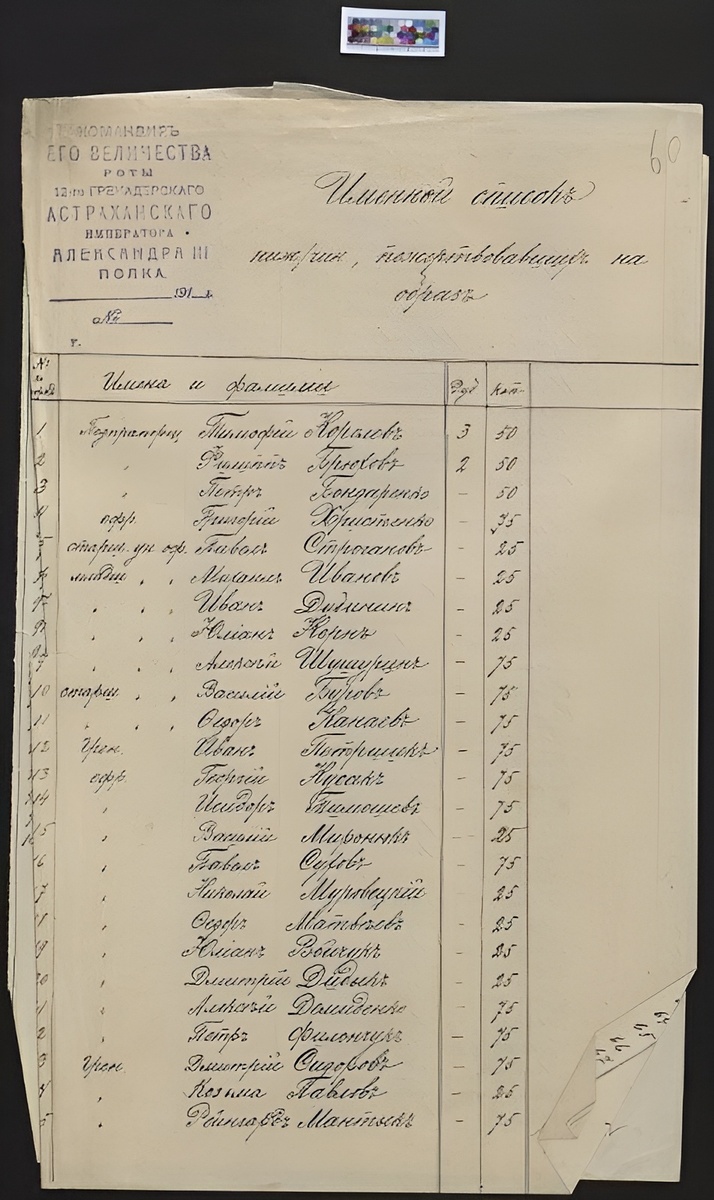 КОМАНДИРЪ
ЕГО ВЕЛИЧЕСТВА
РОТЫ
12-го ГРЕНАДЕРСКАГО
АСТРАХАНСКАГО
ИМПЕРАТОРА
АЛЕКСАНДРА III
ПОЛКА
191 г.
№
г.
60
Именной списокъ
ниж/чин, пожертвовавшихъ на
образъ
№ Имена и фамилии Руб Коп
1 Подпрапорщ Тимофей Королевъ 3 50
2 " Филиппъ Брюховъ 2 50
3 " Петръ Бондаренко - 50
4 ефр. Григорий Христенко - 75
5 старш. ун оф. Павелъ Строгановъ - 25
6 младш " " Михаилъ Ивановъ - 25
7 " " " Иванъ Дудининъ - 25
8 " " " Юліанъ Корнъ - 25
9 " " " Алексѣй Шушуринъ - 75
10 старш " " Василій Буровъ - 75
11 " " " Федоръ Канаевъ - 75
12 Грен. Иванъ Петришикъ - 75
13 ефр. Георгій Кусакъ - 75
14 " Исидоръ Тимошевъ - 75
15 " Василій Миронюкъ - 25
16 " Павелъ Суховъ - 75
17 " Николай Муровецкій - 25
18 " Федоръ Матвѣевъ - 25
19 " Юліанъ Войчукъ - 25
20 " Дмитрій Дидыкъ - 25
1 " Алексѣй Демиденко - 75
2 " Петръ Филончукъ - 75
3 Грен. Дмитрій Сидоровъ - 75
4 " Козьма Павловъ - 25
5 " Рейнгардъ Мантыкъ - 75